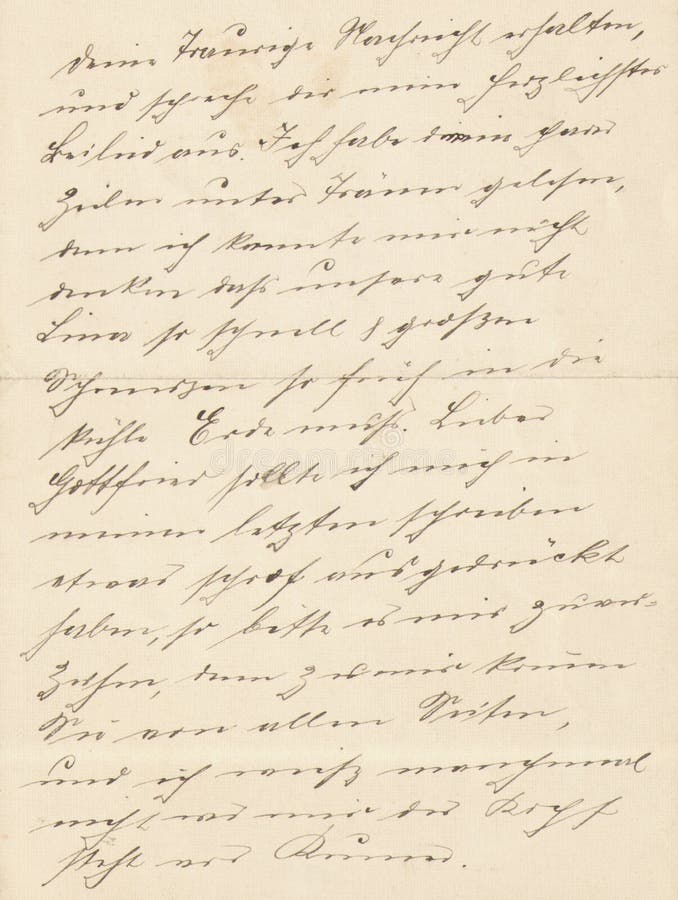 deine Traurige Nachricht erhalten,
und spreche dir mein herzlichstes
Beileid aus. Ich habe dein paar
Zeilen unter Tränen gelesen,
denn ich konnte mir nicht
denken dass unsere gute
Lina so schnell & großen
Schmerzen so früh in die
kühle Erde muss. Lieber
Gottfried sollte ich mich in
meinen letzten schreiben
etwas schrof ausgedrückt
haben, so bitte es mir zuver-
zeihen, denn zu mir komm
Sie von allen Seiten,
und ich weiß manchmal
nicht wo mir der Kopf
steht vor Kummer.